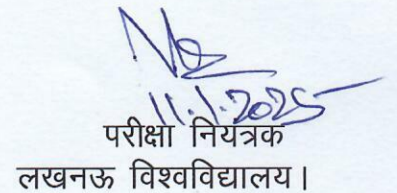 11.1.2025
परीक्षा नियंत्रक
लखनऊ विश्वविद्यालय।